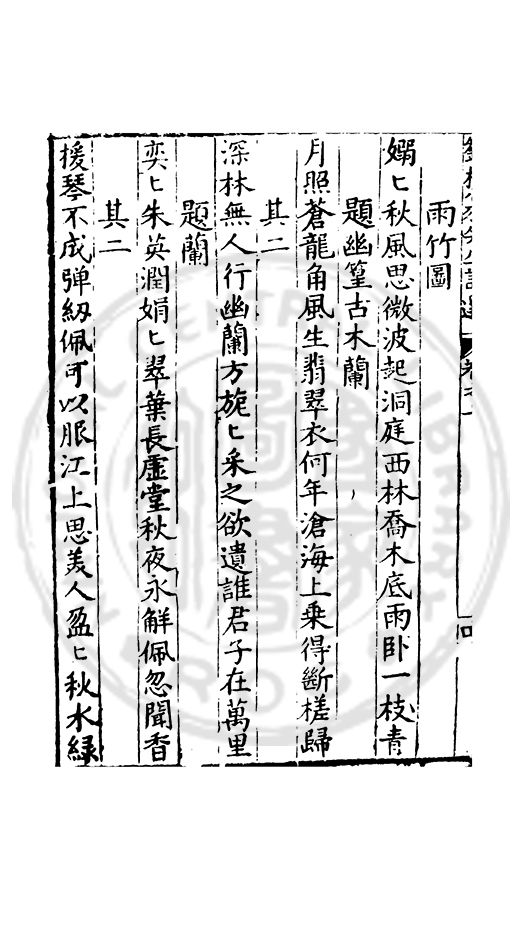 雨竹圖
嫋〻秋風思微波起洞庭西林喬木底雨卧一枝青
題幽篁古木蘭
月照蒼龍角風生翡翠衣何年滄海上乗得斷槎歸
其二
深林無人行幽蘭方旎〻采之欲遺誰君子在萬里
題蘭
奕〻朱英潤娟〻翠葉長虛堂秋夜永解佩忽聞香
其二
援琴不成弹紉佩可以服江上思美人盈〻秋水緑